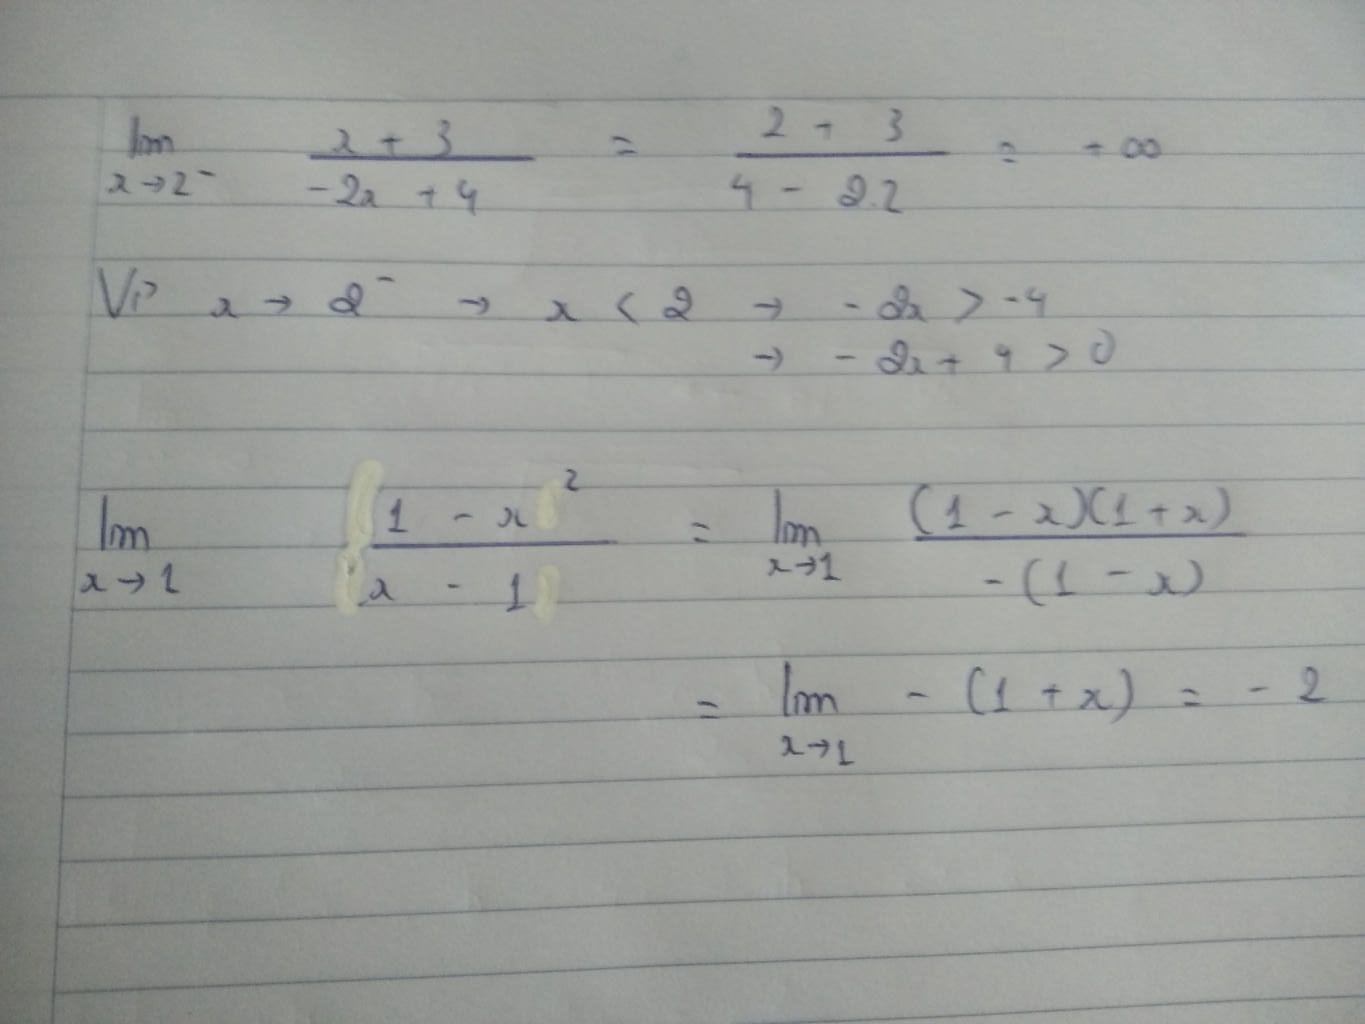 lim x→2⁻ (x + 3)/(-2x + 4) = (2 + 3)/(4 - 2.2) = +∞
Vì x → 2⁻ → x < 2 → -2x > -4
→ -2x + 4 > 0
lim x→1 (1 - x²)/(x - 1) = lim x→1 (1 - x)(1 + x)/-(1 - x)
= lim x→1 -(1 + x) = -2